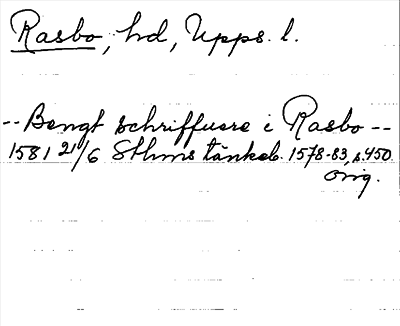 Rasbo, hd, Upps. l.
-- Bengt schriffuere i Rasbo --
1581 21/6 Sthms tänkeb. 1578-83, s. 450.
orig.